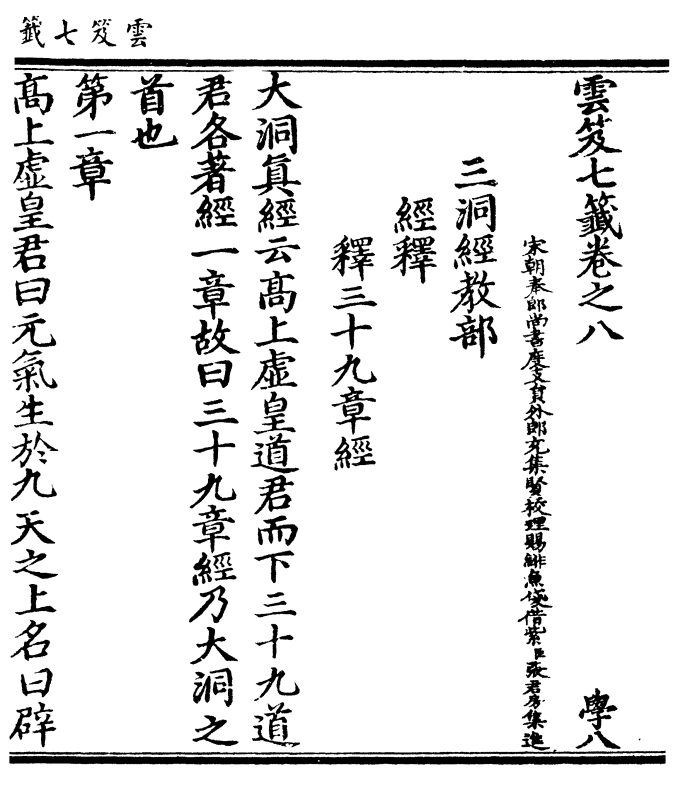 雲笈七籤
雲笈七籤卷之八 學八
宋朝奉郎尚書度支員外郎充集賢校理賜緋魚袋借紫臣張君房集進
三洞經教部
經釋
釋三十九章經
大洞真經云髙上虛皇道君而下三十九道
君各著經一章故曰三十九章經乃大洞之
首也
第一章
髙上虛皇君曰元氣生於九天之上名曰辟